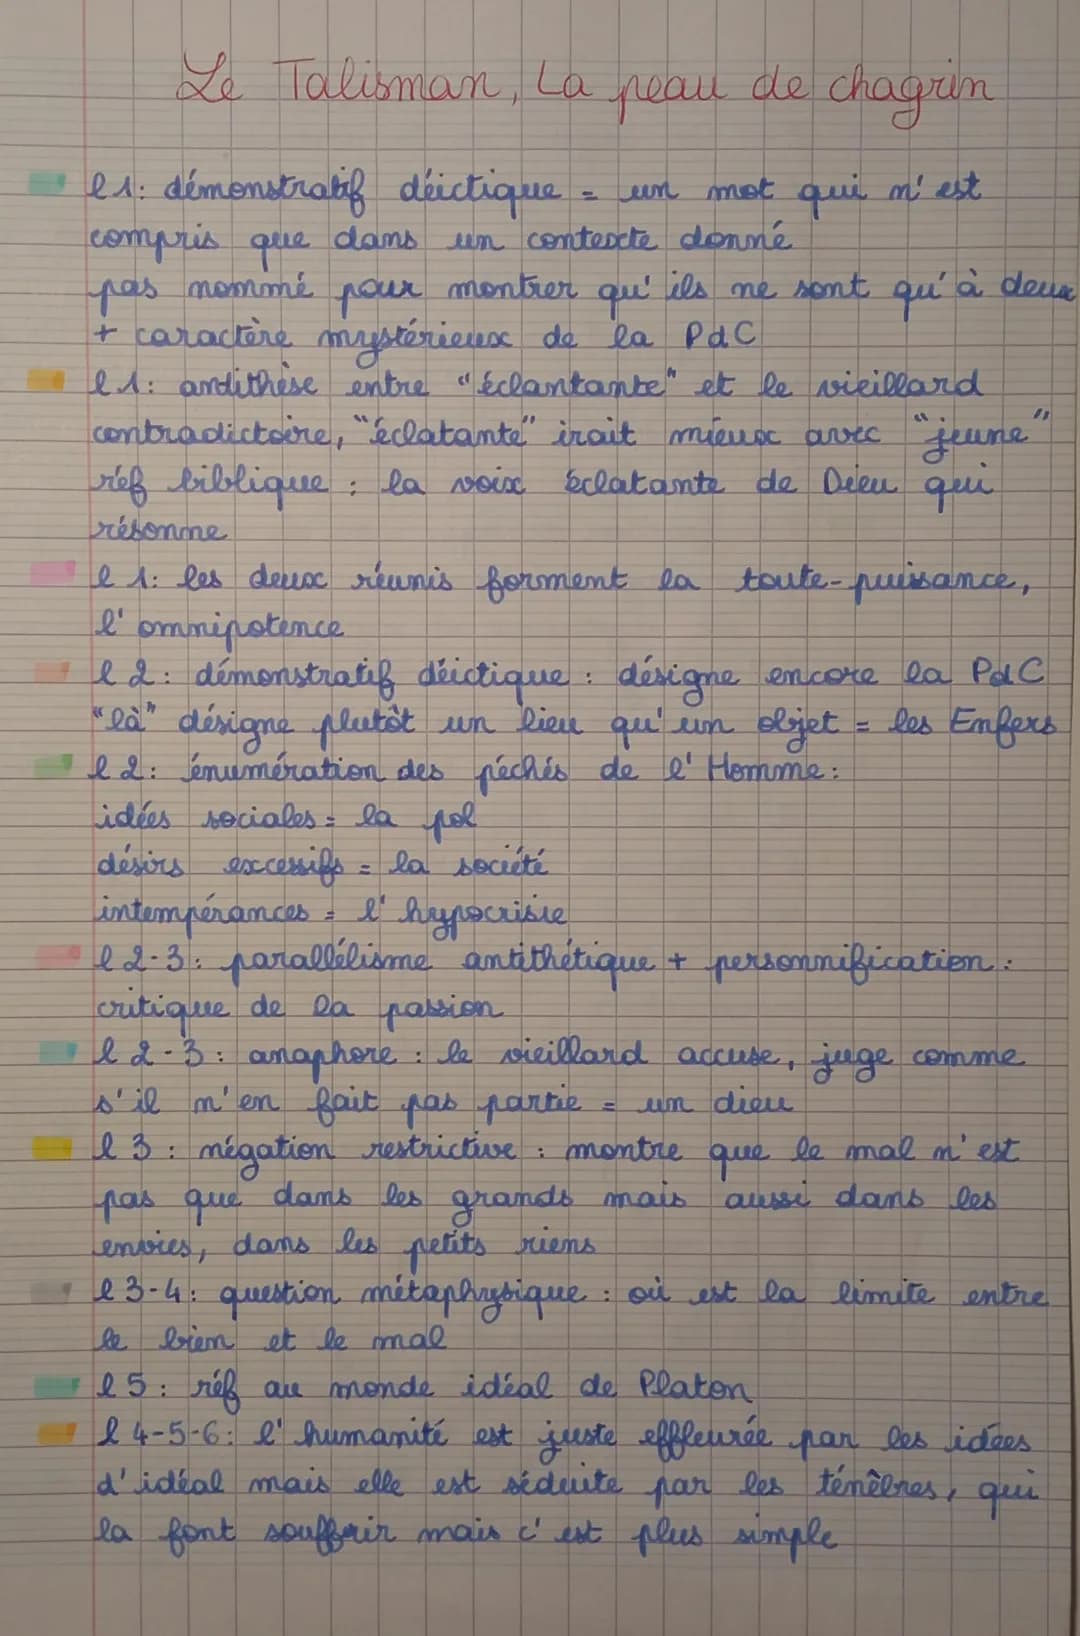 Le Talisman, La peau de chagrin
l 1: démonstratif déictique = un mot qui n'est
compris que dans un contexte donné
pas nommé pour montrer qu'ils ne sont qu'à deux
+ caractère mystérieux de la PdC
l 1: andithèse entre "éclantante" et le vieillard
contradictoire, "éclatante" irait mieux avec "jeune"
réf biblique : la voix éclatante de Dieu qui
résonne
l 1: les deux réunis forment la toute-puissance,
l'omnipotence
l 2: démonstratif déictique : désigne encore la PdC
"là" désigne plutôt un lieu qu'un objet = les Enfers
l 2: énumération des péchés de l'Homme:
idées sociales = la pol
désirs excessifs = la société
intempérances = l'hypocrisie
l 2-3: parallélisme antithétique + personnification :
critique de la passion
l 2-3: anaphore : le vieillard accuse, juge comme
s'il n'en fait pas partie = un dieu
l 3 : négation restrictive : montre que le mal n'est
pas que dans les grands mais aussi dans les
envies, dans les petits riens
l 3-4: question métaphysique : où est la limite entre
le bien et le mal
l 5 : réf au monde idéal de Platon
l 4-5-6: l'humanité est juste effleurée par les idées
d'idéal mais elle est séduite par les ténèbres, qui
la font souffrir mais c'est plus simple